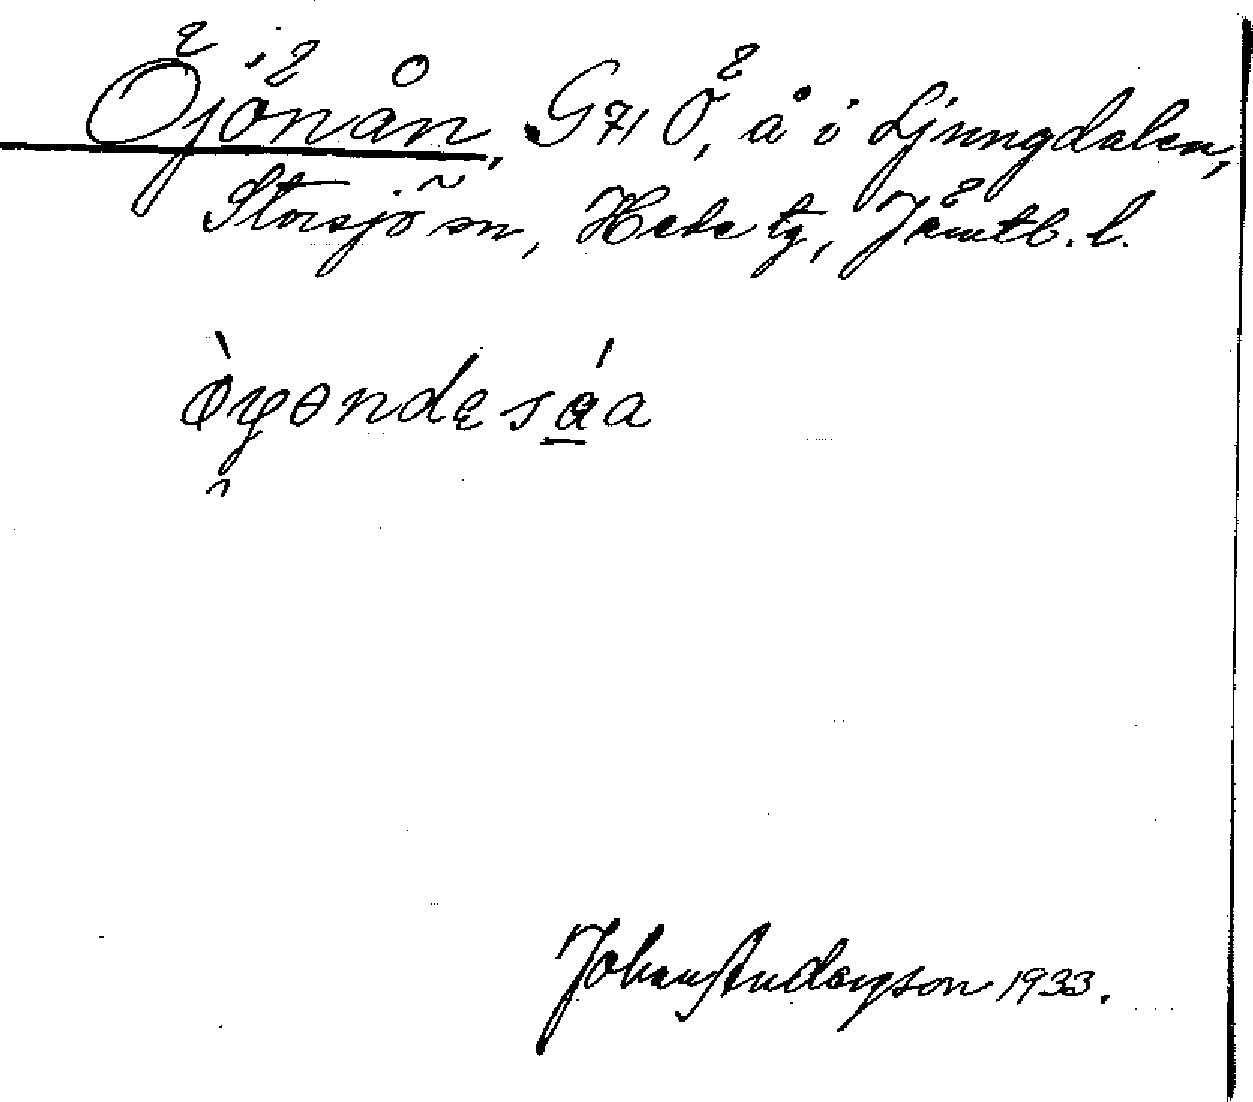 Öjönån, G71 Ö, å i Ljungdalen,
Storsjö sn, Hede tg, Jämtl. l.
Johan Anderson 1933.